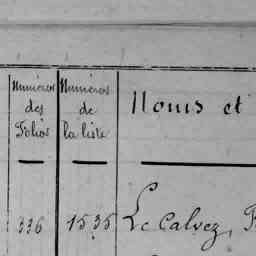 Numéros des Folios
Numéros de la liste
Noms et
336 1535 Le Calvez,